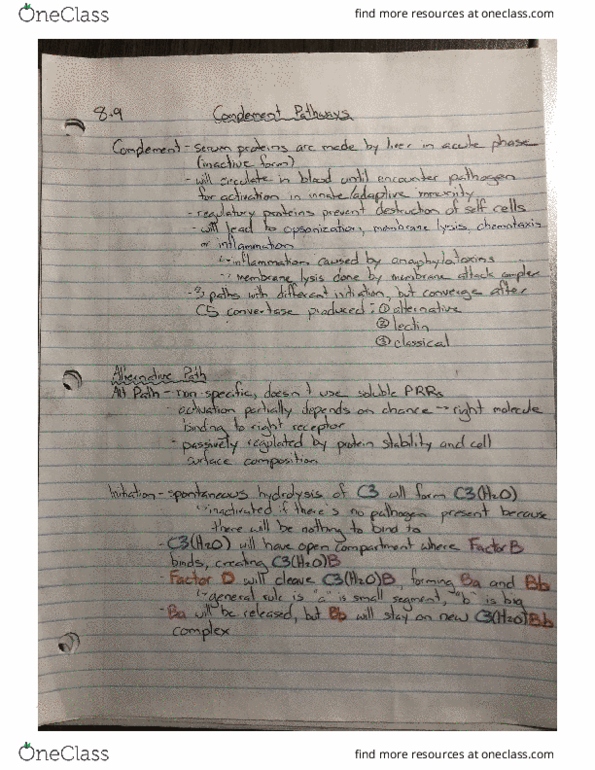 OneClass
find more resources at oneclass.com
8.9 Complement Pathways
Complement - serum proteins are made by liver in acute phase
(inactive form)
- will circulate in blood until encounter pathogen
for activation in innate/adaptive immunity
- regulatory proteins prevent destruction of self cells
- will lead to opsonization, membrane lysis, chemotaxis
or inflammation
↳ inflammation caused by anaphylatoxins
↳ membrane lysis done by membrane attack complex
- 3 paths with different initiation, but converge after
C5 convertase produced: ① alternative
② lectin
③ classical
Alternative Path
Alt Path - non specific, doesn't use soluble PRRs
- activation partially depends on chance → right molecule
binding to right receptor
- passively regulated by protein stability and cell
surface composition
Initiation - spontaneous hydrolysis of C3 will form C3(H2O)
↳ inactivated if there's no pathogen present because
there will be nothing to bind to
- C3(H2O) will have open compartment where Factor B
binds, creating C3(H2O)B
- Factor D will cleave C3(H2O)B, forming Ba and Bb
↳ general rule is "a" is small segment, "b" is big
- Ba will be released, but Bb will stay on new C3(H2O)Bb
complex
OneClass
find more resources at oneclass.com